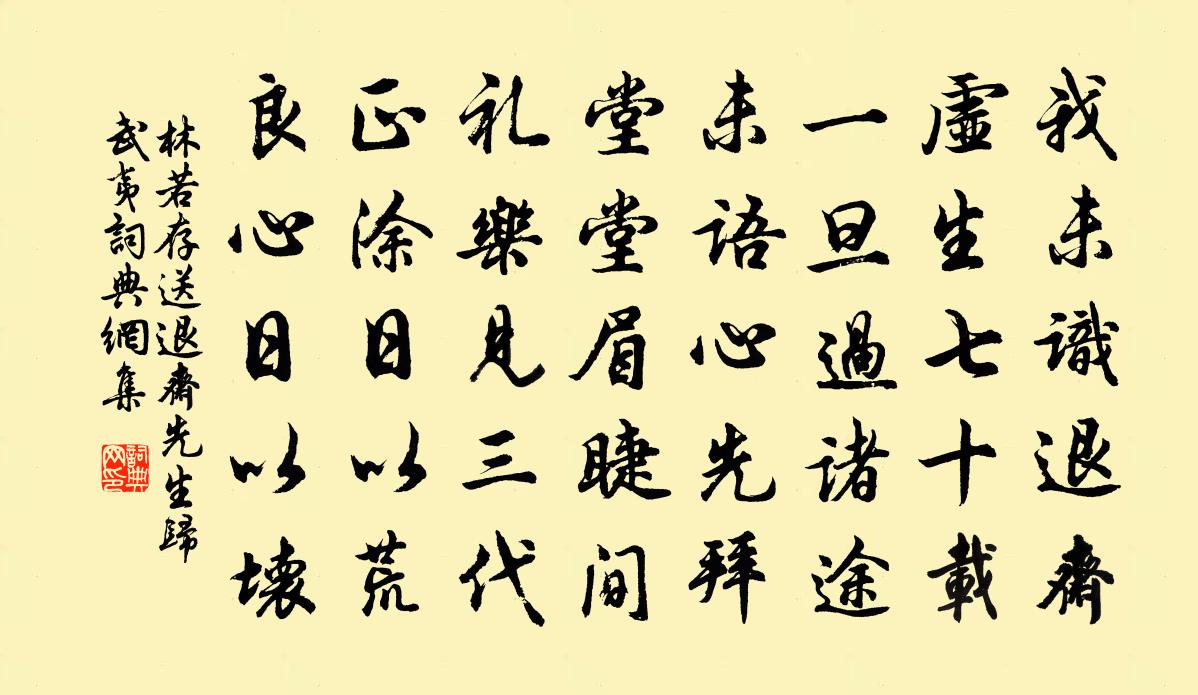 我未識退齋
虛生七十載
一旦過诸途
未语心先拜
堂堂眉睫间
礼樂見三代
正涂日以荒
良心日以壊
林若存送退齋先生歸
武夷詞典網集
詞典網印